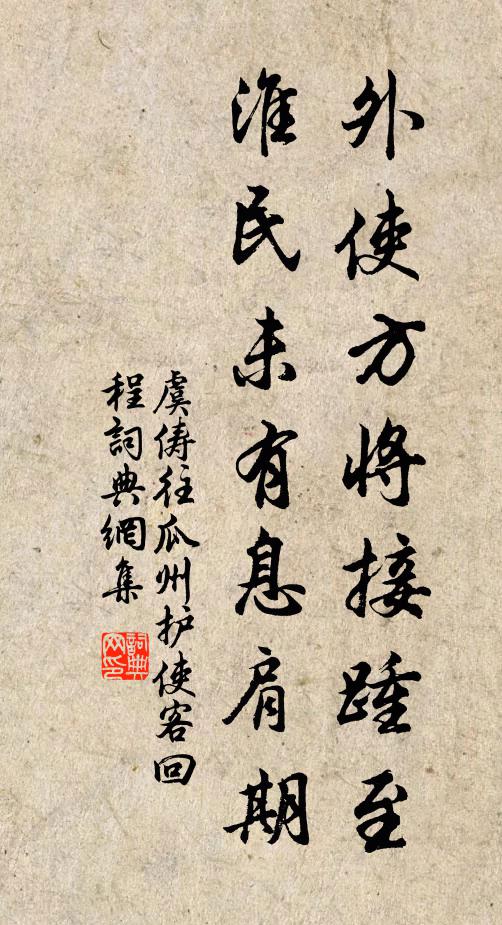 外使方将接踵至
淮民未有息肩期
虞俦往瓜州护使客回
程詞典網集
詞典
网印